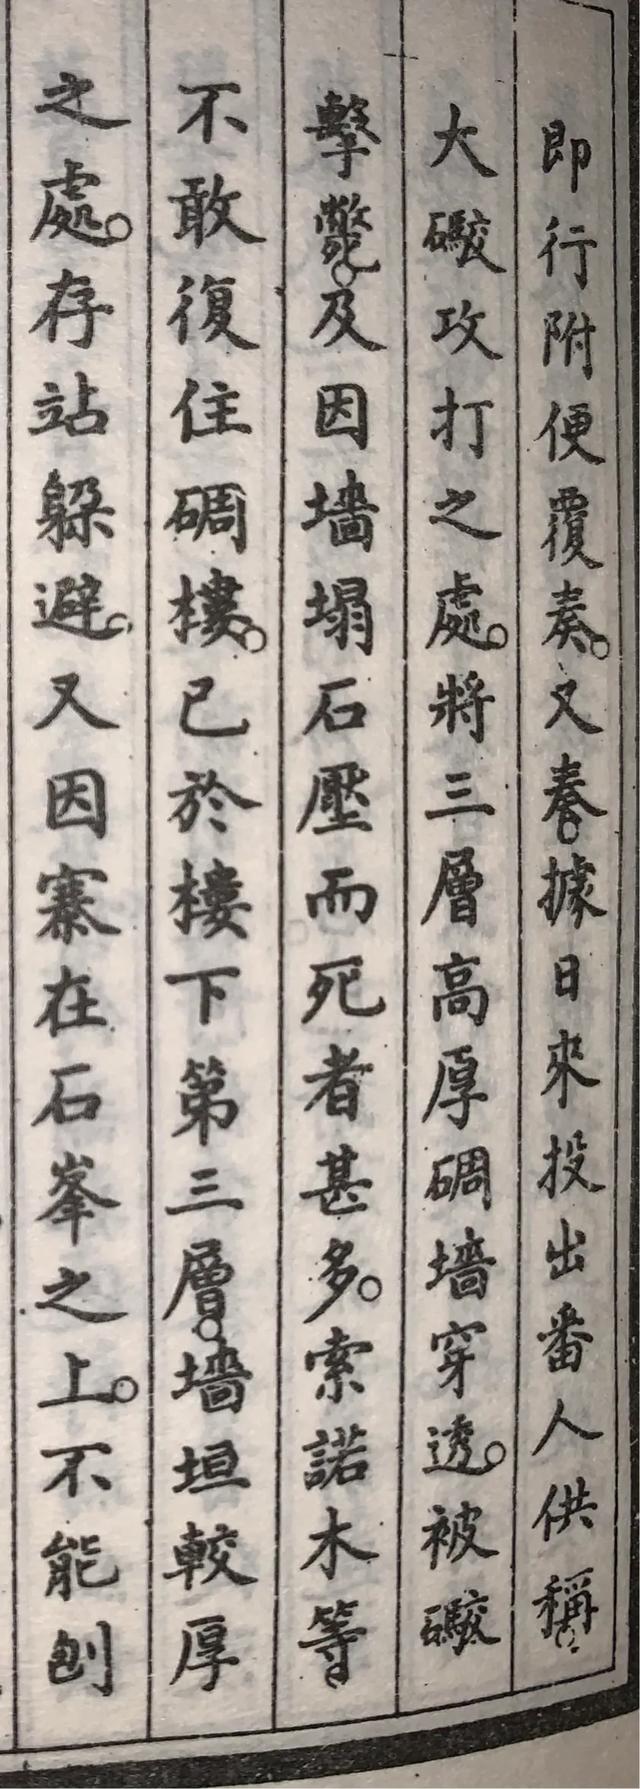 即行附便覆奏。又奏。據日來投出番人供稱。
大礮攻打之處。將三層高厚碉墻穿透。被礮
擊斃。及因墻塌石壓而死者甚多。索諾木等。
不敢復住碉樓。已於樓下第三層。墻垣較厚
之處。存站躲避。又因寨在石峯之上。不能刨